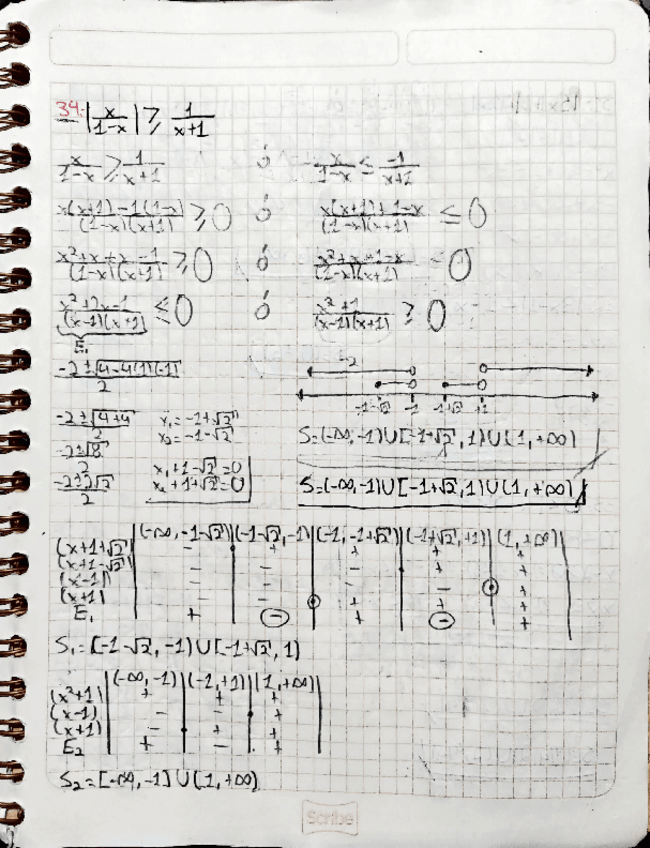 34. |x/(1-x)| ≥ 1/(x+1)
x/(1-x) ≥ 1/(x+1) ó x/(1-x) ≤ -1/(x+1)
(x(x+1)-1(1-x))/((1-x)(x+1)) ≥ 0 ó (x(x+1)+1-x)/((1-x)(x+1)) ≤ 0
(x²+x+x-1)/((1-x)(x+1)) ≥ 0 ó (x²+x+1-x)/((1-x)(x+1)) ≤ 0
(x²+2x-1)/((x-1)(x+1)) ≤ 0 ó (x²+1)/((x-1)(x+1)) ≥ 0
E₁
(-2±√(4-4(1)(-1)))/2
-1-√2 -1 -1+√2 +1
(-2±√(4+4))/2 x₁=-1+√2
x₂=-1-√2
S=(-∞,-1)∪[-1+√2,1)∪(1,+∞)
(-2±√8)/2
x₁+1-√2=0
(-2±2√2)/2 x₂+1+√2=0
S=(-∞,-1)∪[-1+√2,1)∪(1,+∞)
(-∞,-1-√2) (-1-√2,-1) (-1,-1+√2) (-1+√2,+1) (1,+∞)
(x+1+√2) - + + + +
(x+1-√2) - - - + +
(x-1) - - - - +
(x+1) - - + + +
E₁ + - + - +
S₁=[-1-√2,-1)∪[-1+√2,1)
(-∞,-1) (-1,+1) (1,+∞)
(x²+1) + + +
(x-1) - - +
(x+1) - + +
E₂ + - +
S₂=[-∞,-1]∪(1,+∞)
Scribe